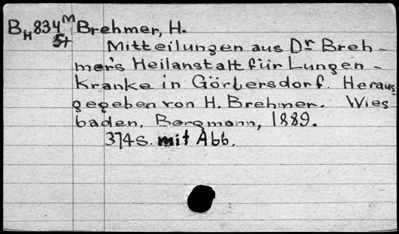 BH834M Brehmer, H.
5+ Mitteilungen aus Dr Breh-
mer's Heilanstalt für Lungen-
Kranke in Görbersdorf. Heraus-
gegeben von H. Brehmer. Wies-
baden, Bergmann, 1889.
374s. mit Abb.